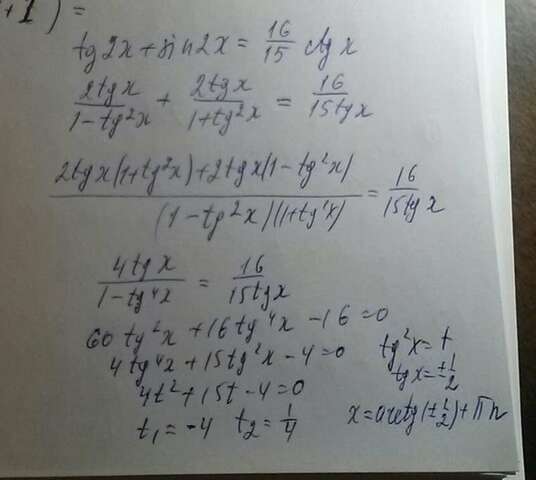 +1) =
tg2x + sin2x = 16/15 ctg x
2tgx/(1-tg²x) + 2tgx/(1+tg²x) = 16/(15tgx)
(2tgx(1+tg²x)+2tgx(1-tg²x))/((1-tg²x)(1+tg²x)) = 16/(15tgx)
4tgx/(1-tg⁴x) = 16/(15tgx)
60tg²x + 16tg⁴x - 16 = 0
4tg⁴x + 15tg²x - 4 = 0 tg²x = t
4t² + 15t - 4 = 0 tgx = ±1/2
t₁ = -4 t₂ = 1/4 x = arctg(±1/2) + πn